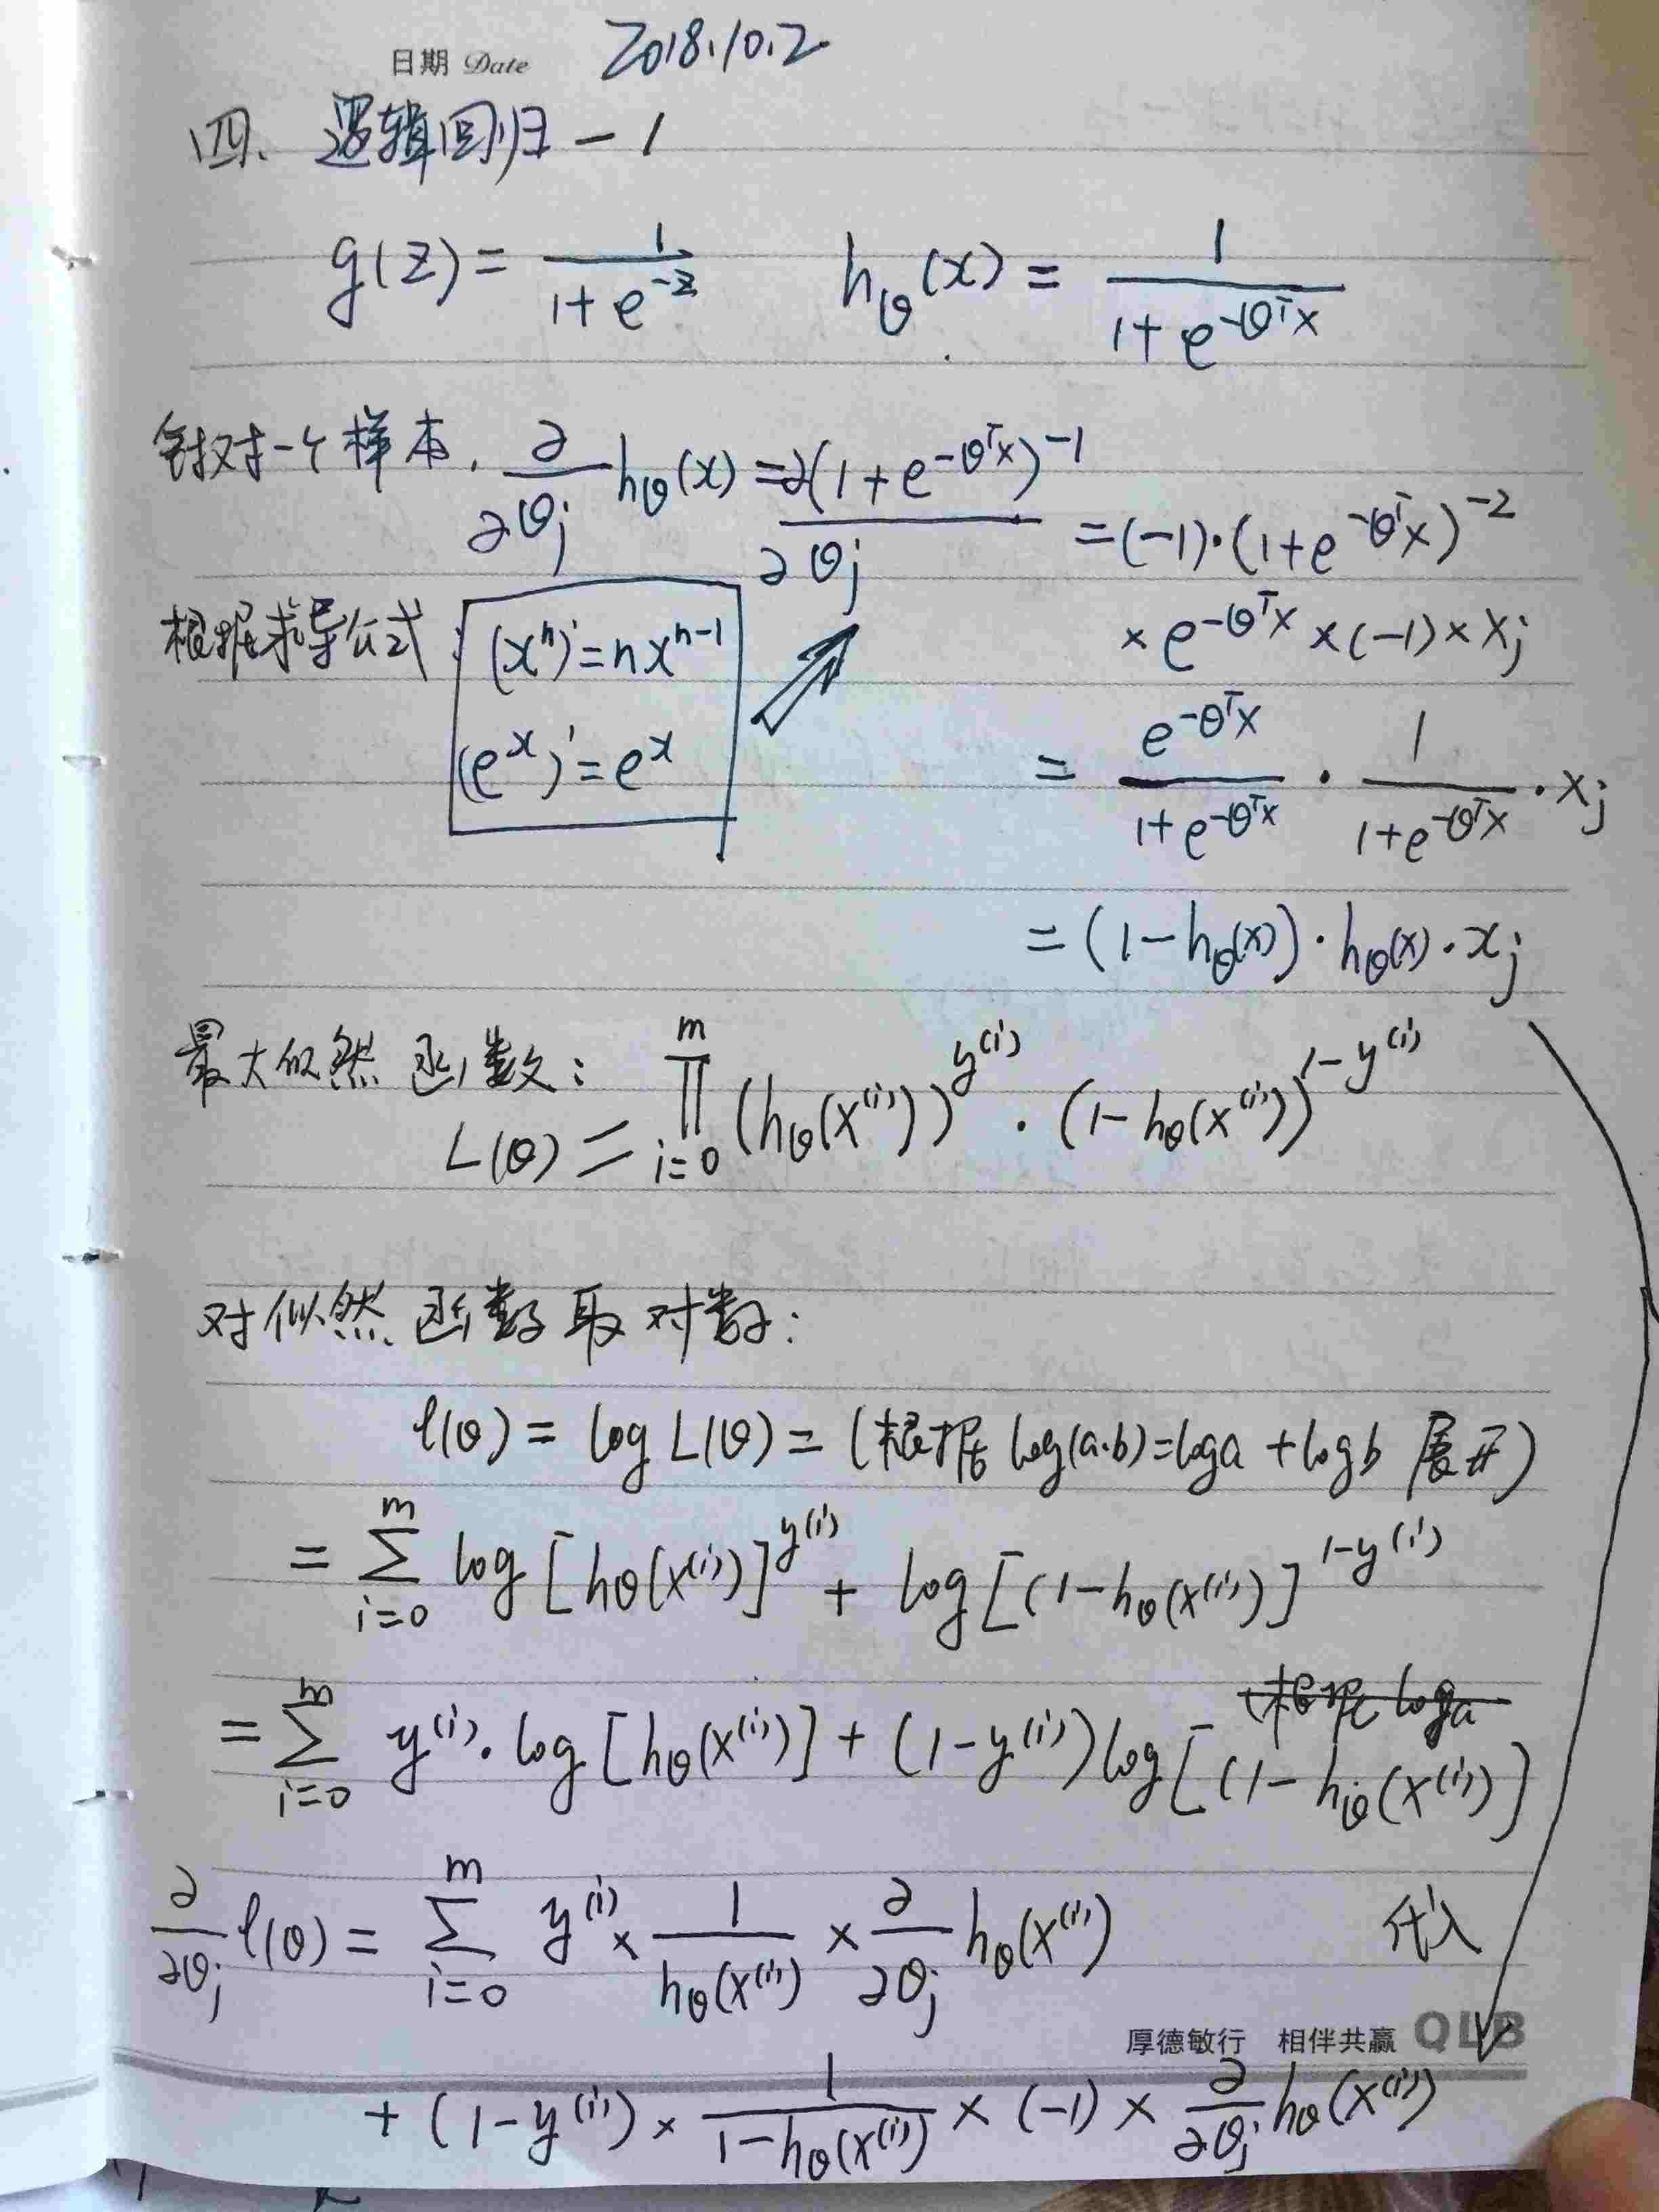 日期 Date 2018.10.2
四、逻辑回归-1
g(z) = 1/(1+e^{-z})  h_θ(x) = 1/(1+e^{-θ^T x})
针对一个样本, ∂/∂θ_j h_θ(x) = ∂(1+e^{-θ^T x})^{-1}/∂θ_j = (-1)·(1+e^{-θ^T x})^{-2}
× e^{-θ^T x} × (-1) × x_j
根据求导公式: (x^n)' = nx^{n-1}
(e^x)' = e^x
= e^{-θ^T x}/(1+e^{-θ^T x}) · 1/(1+e^{-θ^T x}) · x_j
= (1-h_θ(x)) · h_θ(x) · x_j
最大似然函数:
L(θ) = ∏_{i=0}^{m} (h_θ(x^{(i)}))^{y^{(i)}} · (1-h_θ(x^{(i)}))^{1-y^{(i)}}
对似然函数取对数:
ℓ(θ) = log L(θ) = (根据 log(a·b)=loga+logb 展开)
= ∑_{i=0}^{m} log[h_θ(x^{(i)})]^{y^{(i)}} + log[(1-h_θ(x^{(i)})]^{1-y^{(i)}}
(根据 log_a
= ∑_{i=0}^{m} y^{(i)}·log[h_θ(x^{(i)})] + (1-y^{(i)})log[(1-h_θ(x^{(i)})]
∂/∂θ_j ℓ(θ) = ∑_{i=0}^{m} y^{(i)} × 1/h_θ(x^{(i)}) × ∂/∂θ_j h_θ(x^{(i)}) 代入
厚德敏行 相伴共赢 QLB
+ (1-y^{(i)}) × 1/(1-h_θ(x^{(i)})) × (-1) × ∂/∂θ_j h_θ(x^{(i)})